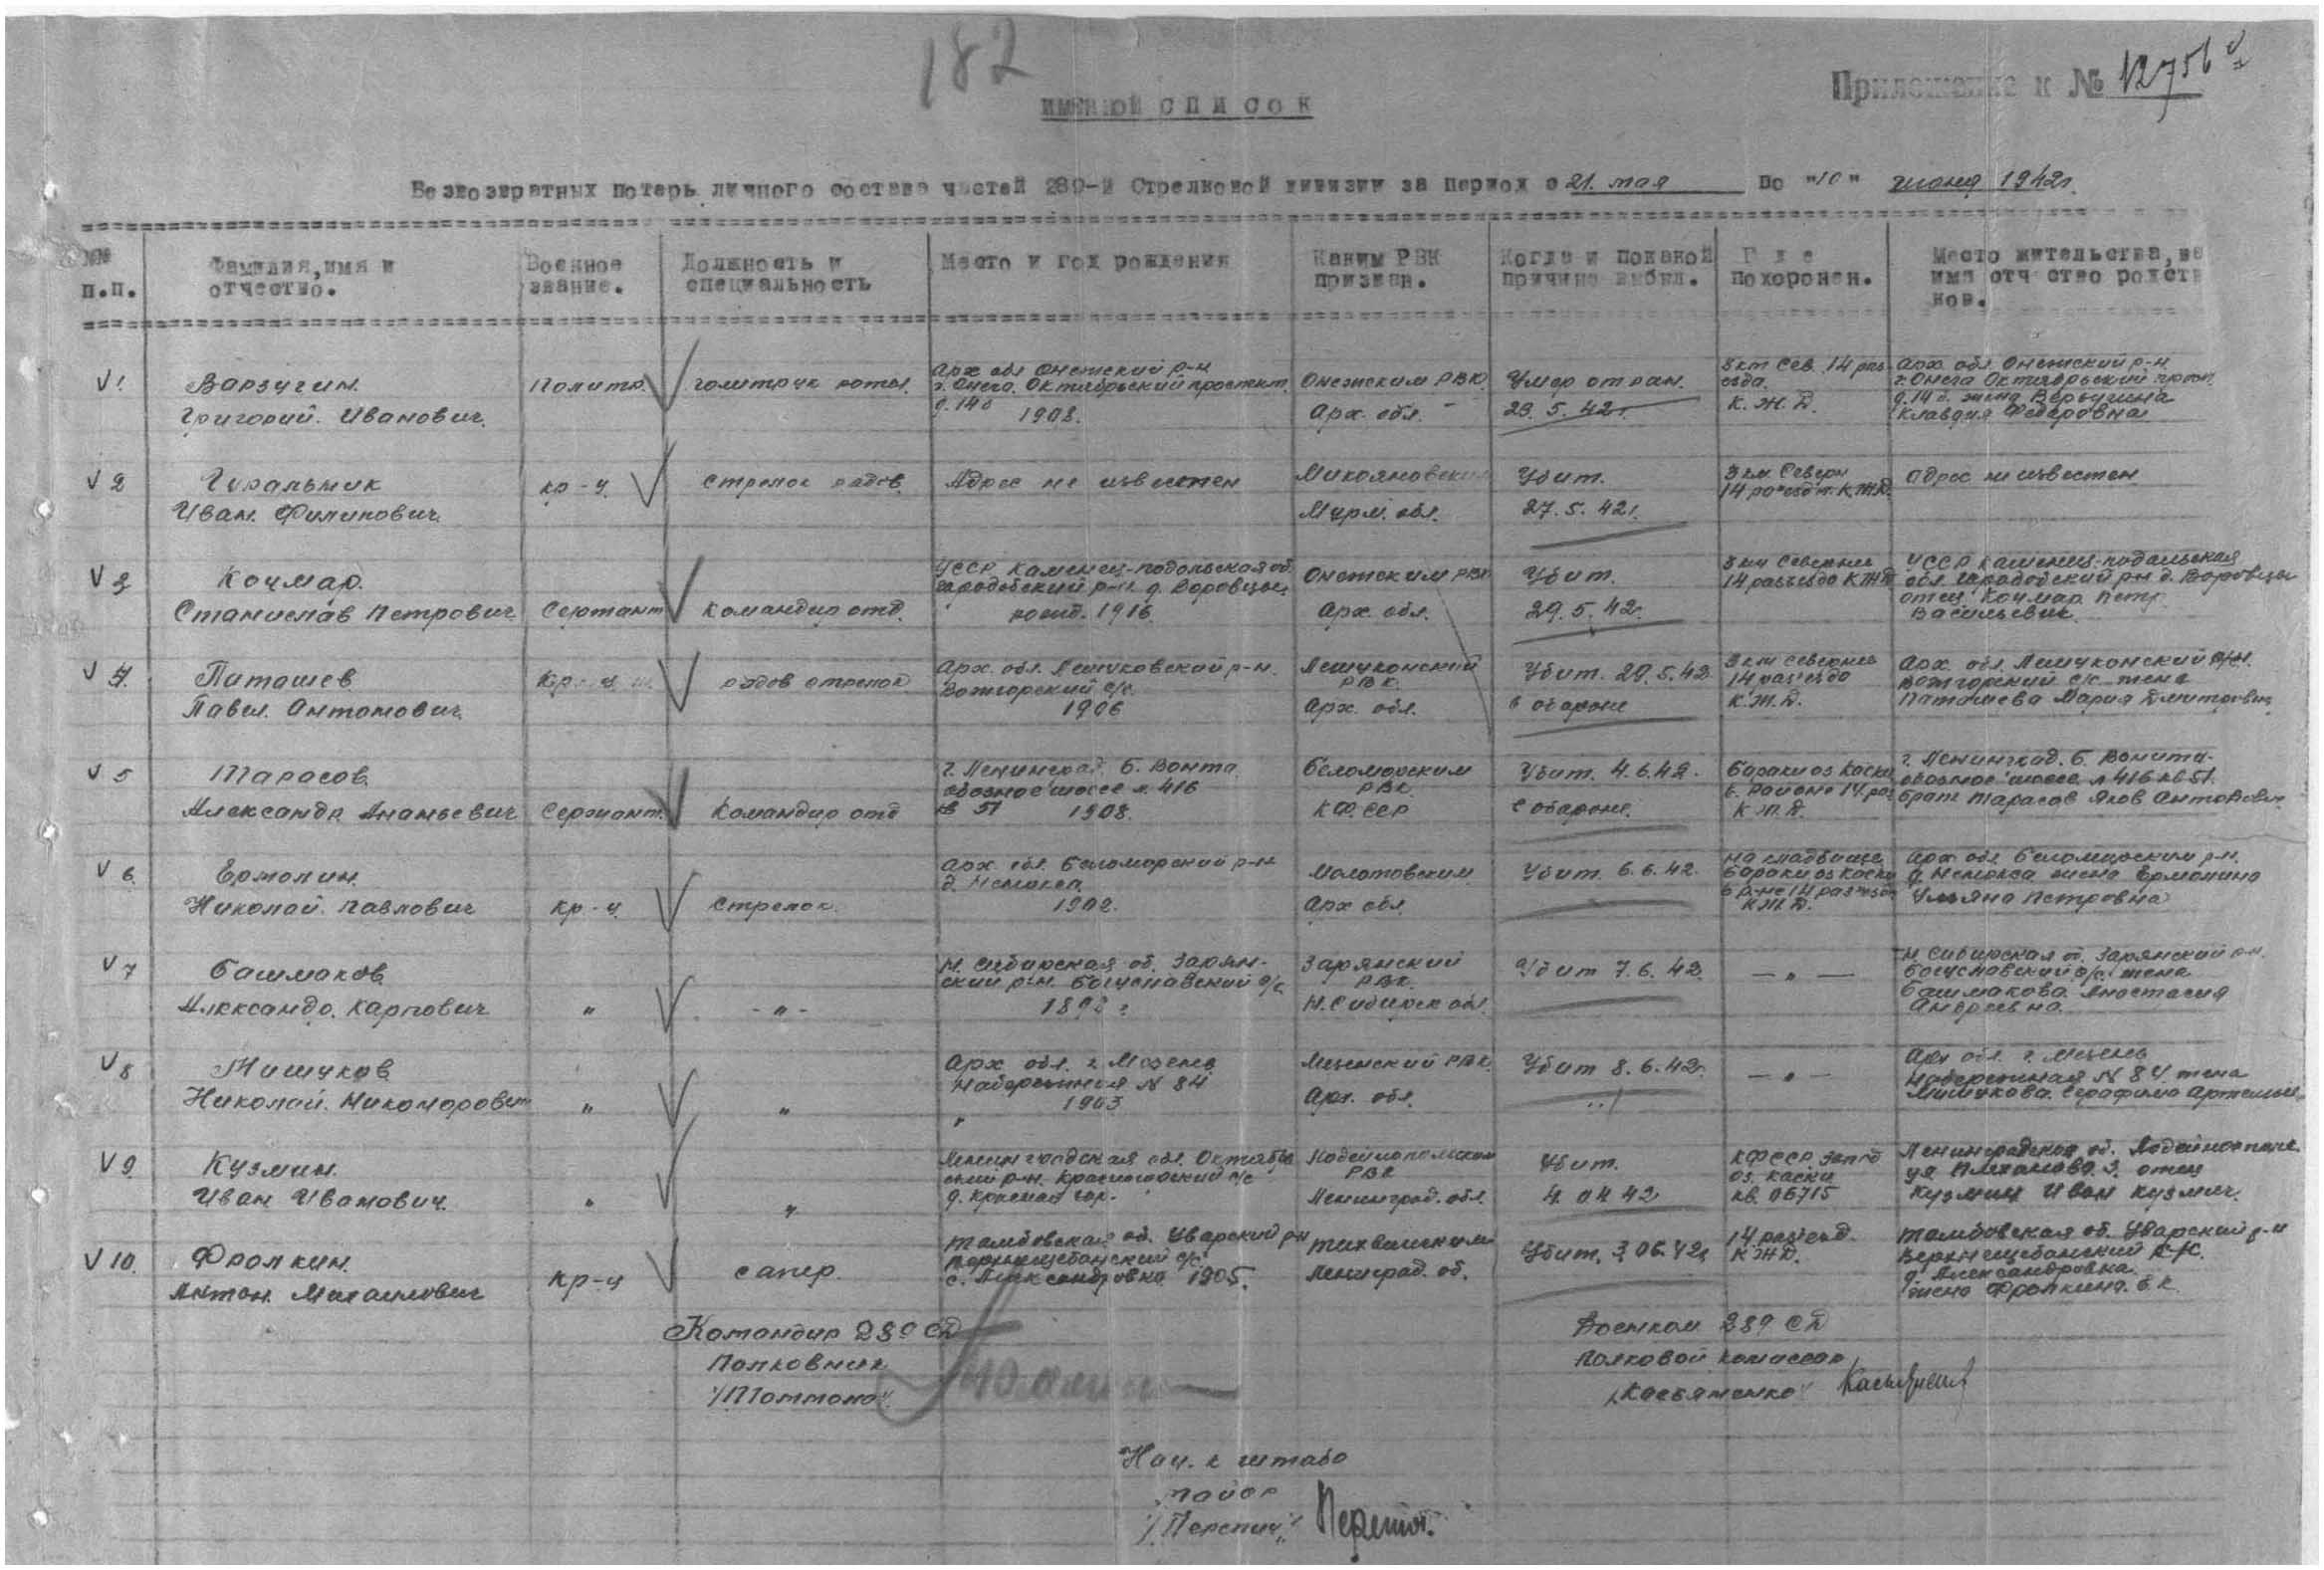 182
Приложение к № 12756
ИМЕННОЙ СПИСОК
Безвозвратных потерь личного состава частей 289-й Стрелковой дивизии за период с 21. мая по "10" июня 1942г.
№№ п.п.
Фамилия, имя и отчество.
Военное звание.
Должность и специальность
Место и год рождения
Каким РВК призван.
Когда и по какой причине выбыл.
Где похоронен.
Место жительства, имя отчество родств
нов.
1.
Варзугин
Григорий Иванович
Политр.
Политрук роты
Арх обл Онежский р-н
г. Онега. Октябрьский проспект
д. 14б
1908.
Онежским РВК
Арх. обл.
Умер от ран.
29. 5. 42г.
3 км Сев. 14 разъезда
К. Ж. Д.
Арх. обл. Онежский р-н
г. Онега Октябрьский просп.
д. 14 б. жена
Клавдия Федоровна
2
Гуральник
Иван Филипович
кр-ц
Стрелок рядов.
Адрес не известен
Микояновский
Мурм. обл.
Убит.
27. 5. 42г.
3 км. Северн
14 разъезд. К.Ж.Д.
Адрес не известен
3
Кочмар.
Станислав Петрович
Сержант
Командир отд.
УССР Каменец-подольская об.
р-н. д. Воровцы
рожд. 1916.
Онежским РВК
Арх. обл.
Убит.
29. 5. 42г.
3 км Севернее
14 разъезда КЖД
УССР Каменец-подольская
обл. р-н д. Воровцы
отец Кочмар Петр
Васильевич
4.
Паташев
Павел Антонович
Кр-ц
рядов стрелок
Арх. обл. Лешуковский р-н.
Вожгорский с/с.
1906
Лешуконский
РВК.
Арх. обл.
Убит. 29. 5. 42
в обороне
3 км Севернее
14 разъезда
К. Ж. Д.
Арх. обл. Лешуконский р-н.
Вожгорский с/с жена
Паташева Мария Дмитровн
5
Тарасов
Александр Ананьевич
Сержант
Командир отд
г. Ленинград. Б.
шоссе д. 416
кв 51
1908.
Беломорским
РВК.
КФССР
Убит. 4. 6. 42.
в обороне.
Бараки оз Каски
в районе 14 раз
К. Ж. Д.
г. Ленинград. Б.
шоссе д 416 кв 51.
брат Тарасов Яков
6.
Ермолин
Николай Павлович
кр-ц
Стрелок.
Арх. обл. Беломорский р-н
д. Ненокса
1902.
Молотовским
Арх обл.
Убит. 6. 6. 42.
На кладбище
Бараки оз Каски
в р-не 14 разъезда
К Ж Д.
Арх обл. Беломорским р-н.
д. Ненокса жена Ермолина
Ульяна Петровна
7
Башмаков
Александр. Карпович
"
- " -
Н. Сибирская об. Зарян-
ский р-н. Богуславский с/с
1898 г
Зарянский
РВК.
Н. Сибирск обл.
Убит 7. 6. 42
— " —
Н. Сибирская об. Зарянский р-н.
Богуславский с/с жена
Башмакова Анастасия
Андреевна.
8
Мишуков
Николай Никонорович
"
"
Арх обл. г. Мезень
Набережная № 84
1903
Мезенский РВК.
Арх. обл.
Убит 8. 6. 42г.
— " —
Арх обл. г. Мезень
Набережная № 84. жена
Мишукова Серафима
9
Кузмин
Иван Иванович.
"
"
Ленинградская обл. Октябрь
ский р-н. с/с
д. Красная гор.
Лодейнопольским
РВК
Ленинград. обл.
Убит.
4 04 42
КФССР запад
оз. Каски
кв. 06715
Ленинградская об.
ул Плеханова 3. отец
Кузмин Иван Кузмич.
10.
Фролкин.
Антон. Михаилович
кр-ц
сапер.
Тамбовская об. Уварский рн
с/с
с. Александровка 1905.
Тихвинским
Ленинград. об.
Убит. 3 06. 42г
14 разъезд.
КЖД.
Тамбовская об. Уварский р-н
с/с.
д. Александровка
жена Фролкина. Е. К.
Командир 289 СД
Полковник
/Томмола/
Военком 289 СД
Полковой комиссар
/Касьяненко/
Нач. штаба
майор
/Перепич/